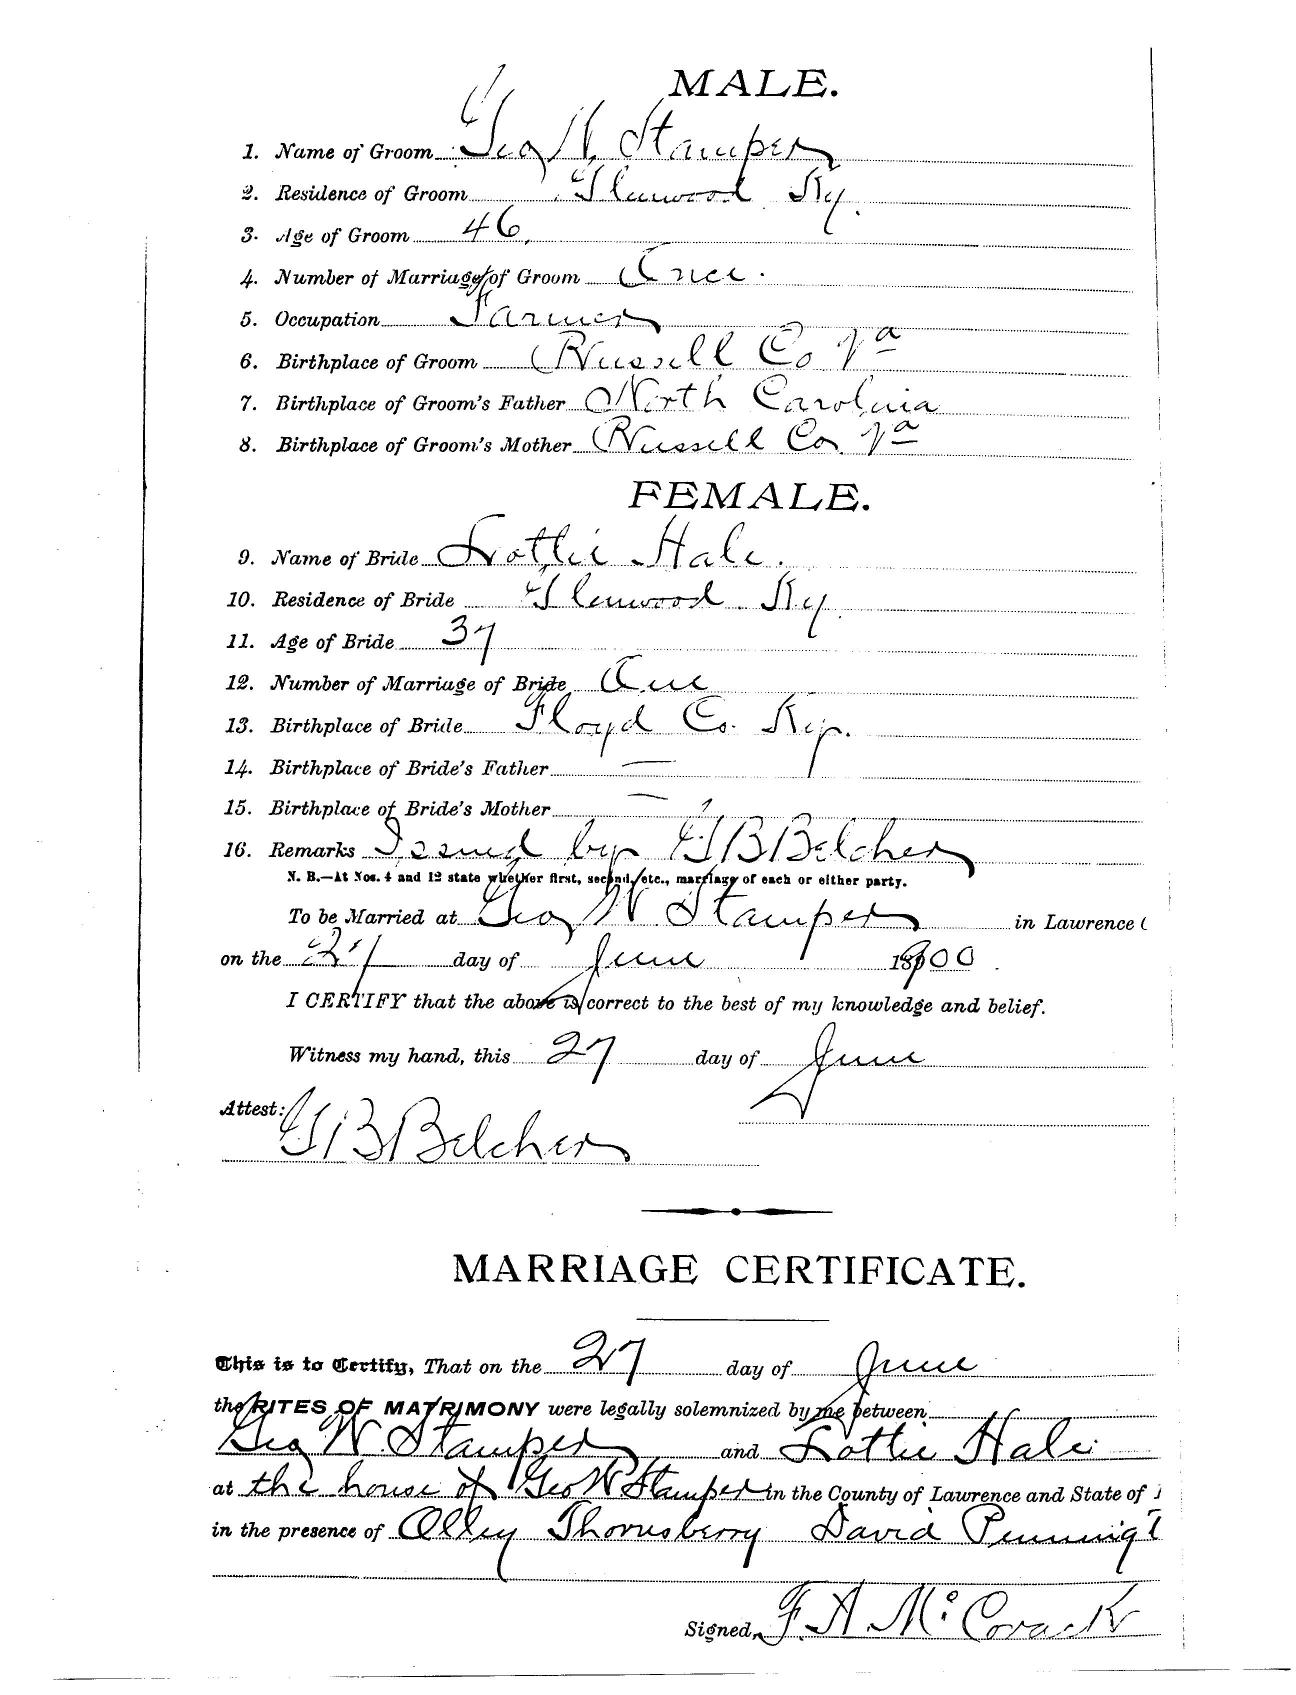 MALE.
1. Name of Groom Geo W. Stamper
2. Residence of Groom Glenwood Ky.
3. Age of Groom 46.
4. Number of Marriage of Groom Once.
5. Occupation Farmer
6. Birthplace of Groom Russell Co Va
7. Birthplace of Groom's Father North Carolina
8. Birthplace of Groom's Mother Russell Co. Va
FEMALE.
9. Name of Bride Lottie Hale.
10. Residence of Bride Glenwood Ky.
11. Age of Bride 37
12. Number of Marriage of Bride One
13. Birthplace of Bride Floyd Co. Ky.
14. Birthplace of Bride's Father —
15. Birthplace of Bride's Mother —
16. Remarks Issued by G B Belcher
N. B.—At Nos. 4 and 12 state whether first, second, etc., marriage of each or either party.
To be Married at Geo W Stamper in Lawrence C
on the 27 day of June 1900.
I CERTIFY that the above is correct to the best of my knowledge and belief.
Witness my hand, this 27 day of June
Attest:
G B Belcher
MARRIAGE CERTIFICATE.
This is to Certify, That on the 27 day of June
the RITES OF MATRIMONY were legally solemnized by me between
Geo W. Stamper and Lottie Hale
at the house of Geo W Stamper in the County of Lawrence and State of
in the presence of Olley Thornsberry David Penningt
Signed, F. A. McCorack